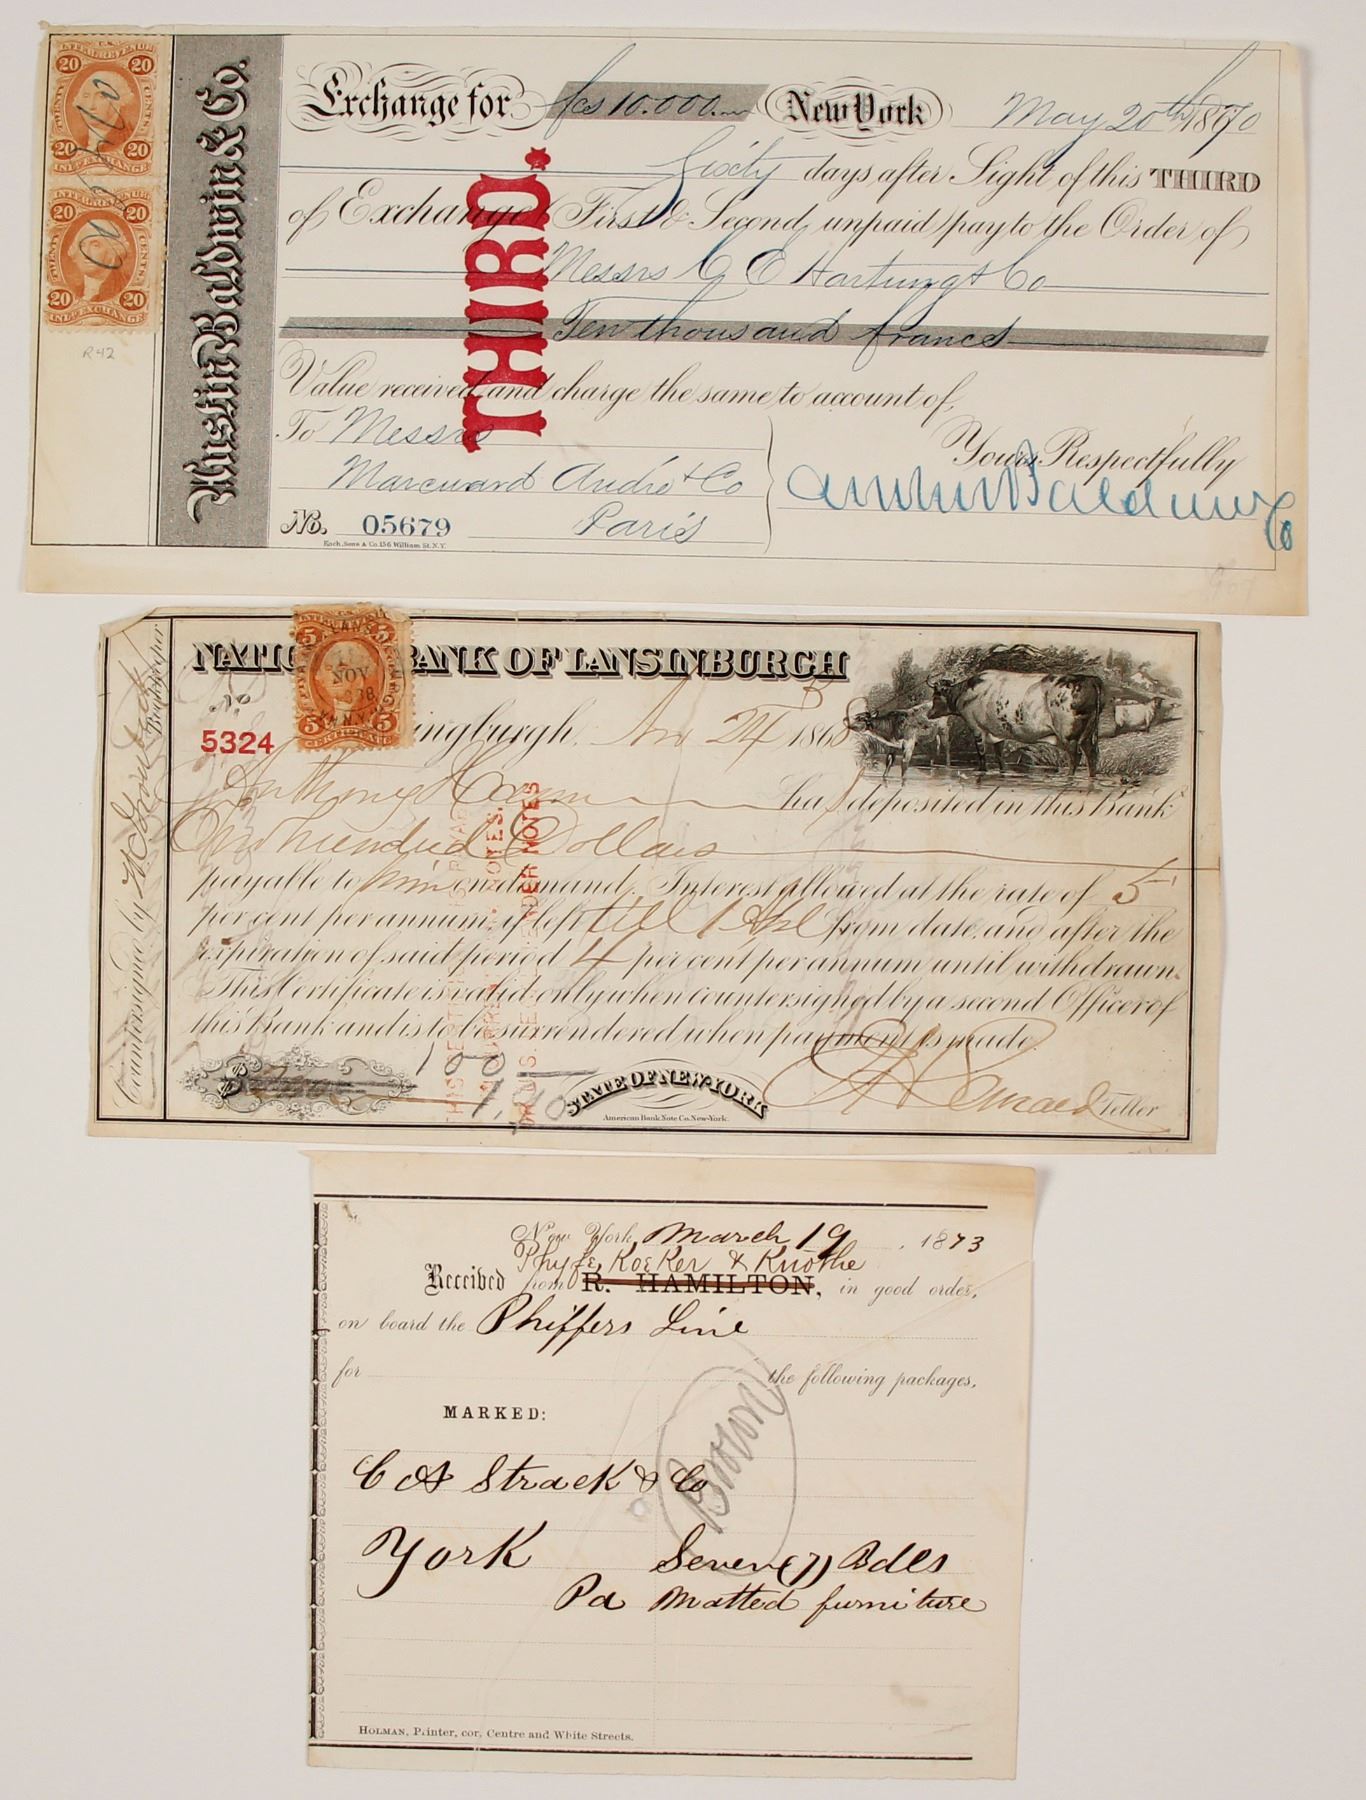 U.S. INTER. REVENUE
20 20
TWENTY CENTS
20 20
INL. EXCHANGE
U.S. INTER. REVENUE
20 20
TWENTY CENTS
20 20
INL. EXCHANGE
R42
Austin Baldwin & Co.
Exchange for fcs 10.000.— New York May 20th 1870
Sixty days after Sight of this THIRD
of Exchange First & Second unpaid pay to the Order of
Messrs G E Hartung & Co
Ten thousand francs
THIRD.
Value received and charge the same to account of,
To Messrs Yours Respectfully
Marcuard André & Co Austin Baldwin & Co
No. 05679 Paris
Koch, Sons & Co. 156 William St. N.Y.
NATIONAL BANK OF LANSINBURGH
5 5
NOV
5 5
CERTIFICATE
No
5324
ingburgh, Nov 24 1868
Anthony has deposited in this Bank
One hundred Dollars
payable to him on demand. Interest allowed at the rate of 5
per cent per annum, if left till 1 Apl from date, and after the
expiration of said period 4 per cent per annum until withdrawn.
This Certificate is valid only when countersigned by a second Officer of
this Bank and is to be surrendered when payment is made.
$ 100
1,40
STATE OF NEW-YORK
American Bank Note Co. New-York.
Teller
Countersigned by Bookkeeper
New York, March 19, 1873
Phyfe, Koeker & Knothe
Received from R. HAMILTON, in good order,
on board the Phiffers Line
for the following packages,
MARKED:
Brown
C A Strack & Co
York Seven (7) Bdls
Pa Matted furniture
HOLMAN, Printer, cor. Centre and White Streets.